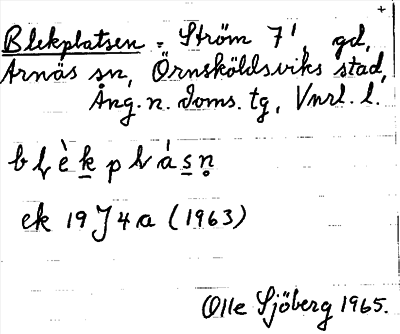 +
Blekplatsen. Ström 7¹, gd,
Arnäs sn, Örnsköldsviks stad,
Ång. n. doms. tg, Vnrl. l.
blèkplásn
ek 19J4a (1963)
Olle Sjöberg 1965.